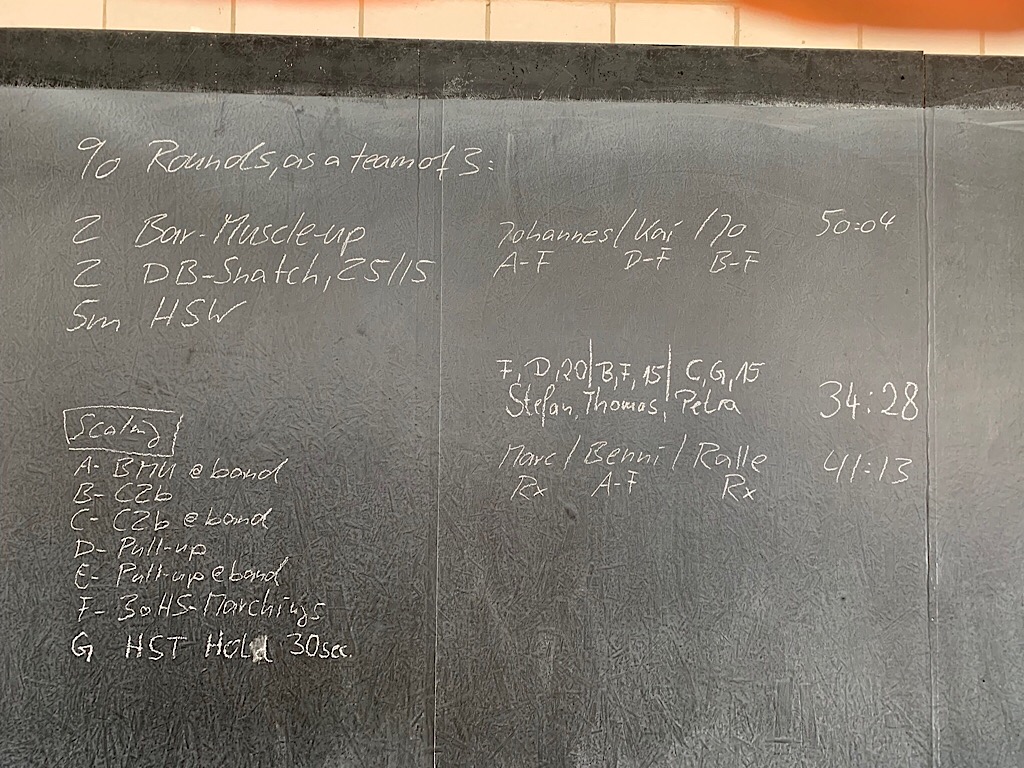 90 Rounds, as a team of 3:
2 Bar-Muscle-up
2 DB-Snatch, 25/15
5m HSW
Scaling
A- BMU @ band
B- C2b
C- C2b @ band
D- Pull-up
E- Pull-up @ band
F- 30 HS-Marchings
G HST Hold 30sec.
Johannes / Kai / Jo 50:04
A-F D-F B-F
F, D, 20 | B, F, 15 | C, G, 15
Stefan, Thomas, Petra 34:28
Marc / Benni / Ralle 41:13
Rx A-F Rx